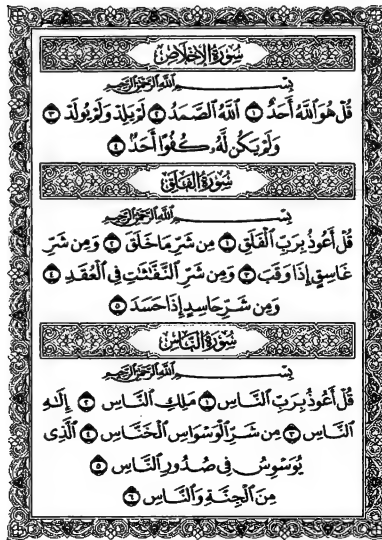 سُورَةُ الإِخْلَاصِ
بِسْمِ اللَّهِ الرَّحْمَٰنِ الرَّحِيمِ
قُلْ هُوَ ٱللَّهُ أَحَدٌ ١ ٱللَّهُ ٱلصَّمَدُ ٢ لَمْ يَلِدْ وَلَمْ يُولَدْ ٣
وَلَمْ يَكُن لَّهُۥ كُفُوًا أَحَدٌ ٤
سُورَةُ الْفَلَقِ
بِسْمِ اللَّهِ الرَّحْمَٰنِ الرَّحِيمِ
قُلْ أَعُوذُ بِرَبِّ ٱلْفَلَقِ ١ مِن شَرِّ مَا خَلَقَ ٢ وَمِن شَرِّ
غَاسِقٍ إِذَا وَقَبَ ٣ وَمِن شَرِّ ٱلنَّفَّٰثَٰتِ فِى ٱلْعُقَدِ ٤
وَمِن شَرِّ حَاسِدٍ إِذَا حَسَدَ ٥
سُورَةُ النَّاسِ
بِسْمِ اللَّهِ الرَّحْمَٰنِ الرَّحِيمِ
قُلْ أَعُوذُ بِرَبِّ ٱلنَّاسِ ١ مَلِكِ ٱلنَّاسِ ٢ إِلَٰهِ
ٱلنَّاسِ ٣ مِن شَرِّ ٱلْوَسْوَاسِ ٱلْخَنَّاسِ ٤ ٱلَّذِى
يُوَسْوِسُ فِى صُدُورِ ٱلنَّاسِ ٥
مِنَ ٱلْجِنَّةِ وَٱلنَّاسِ ٦